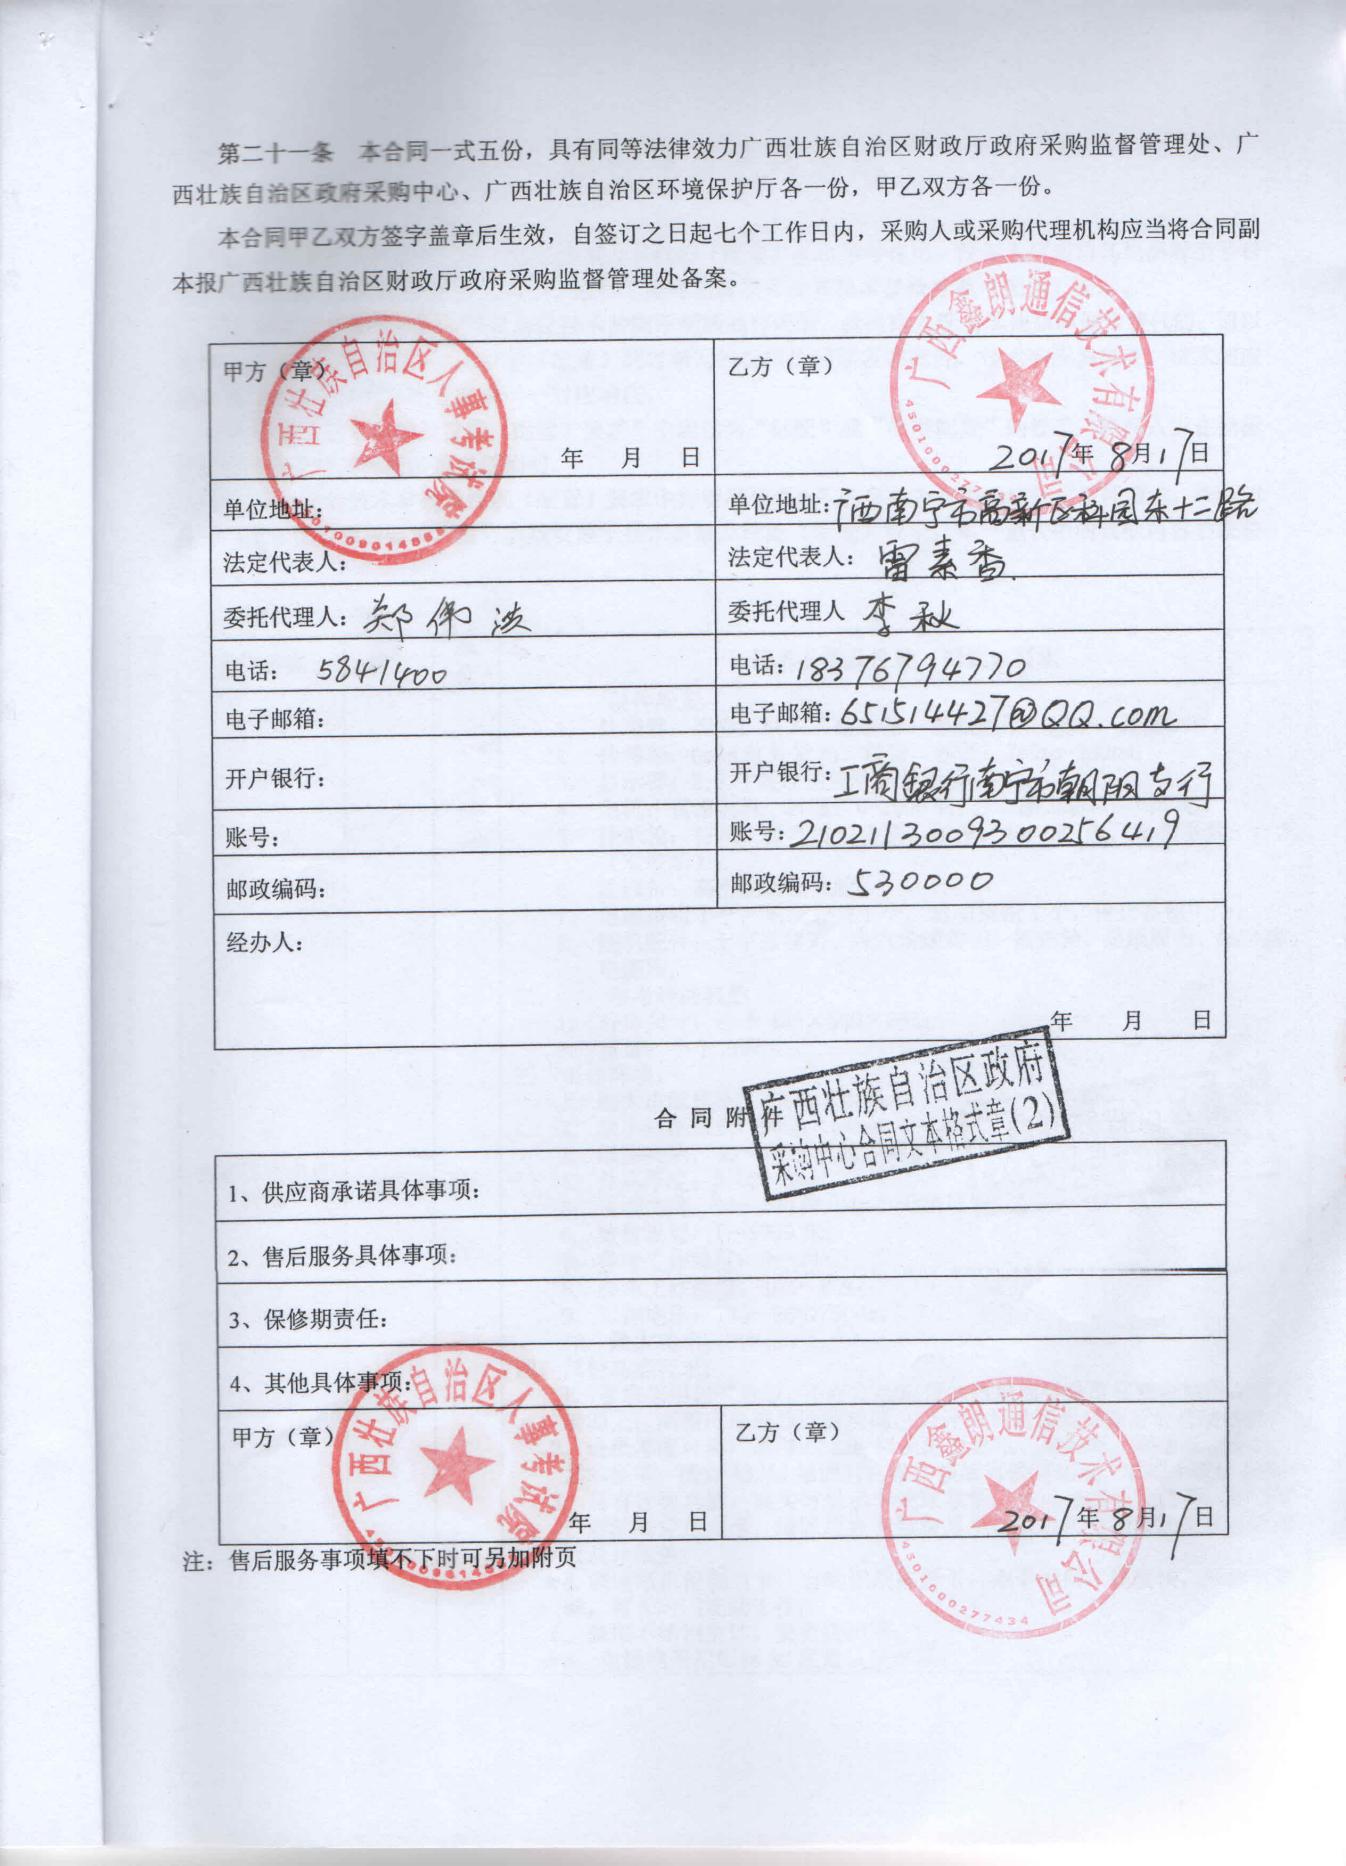 第二十一条 本合同一式五份，具有同等法律效力广西壮族自治区财政厅政府采购监督管理处、广
西壮族自治区政府采购中心、广西壮族自治区环境保护厅各一份，甲乙双方各一份。
本合同甲乙双方签字盖章后生效，自签订之日起七个工作日内，采购人或采购代理机构应当将合同副
本报广西壮族自治区财政厅政府采购监督管理处备案。
甲方（章）
广西壮族自治区人事考试院
年 月 日
乙方（章）
广西鑫朗通信技术有限公司
2017年8月17日
单位地址：
单位地址：广西南宁市高新区科园东十二路
法定代表人：
法定代表人：雷素香
委托代理人：郑伟
委托代理人 李秋
电话： 5841400
电话：18376794770
电子邮箱：
电子邮箱：651514427@QQ.com
开户银行：
开户银行：工商银行南宁市朝阳支行
账号：
账号：2102113009300256419
邮政编码：
邮政编码：530000
经办人：
年 月 日
合同附件
广西壮族自治区政府
采购中心合同文本格式章(2)
1、供应商承诺具体事项：
2、售后服务具体事项：
3、保修期责任：
4、其他具体事项：
甲方（章）
广西壮族自治区人事考试院
年 月 日
乙方（章）
广西鑫朗通信技术有限公司
4501000277434
2017年8月17日
注：售后服务事项填不下时可另加附页